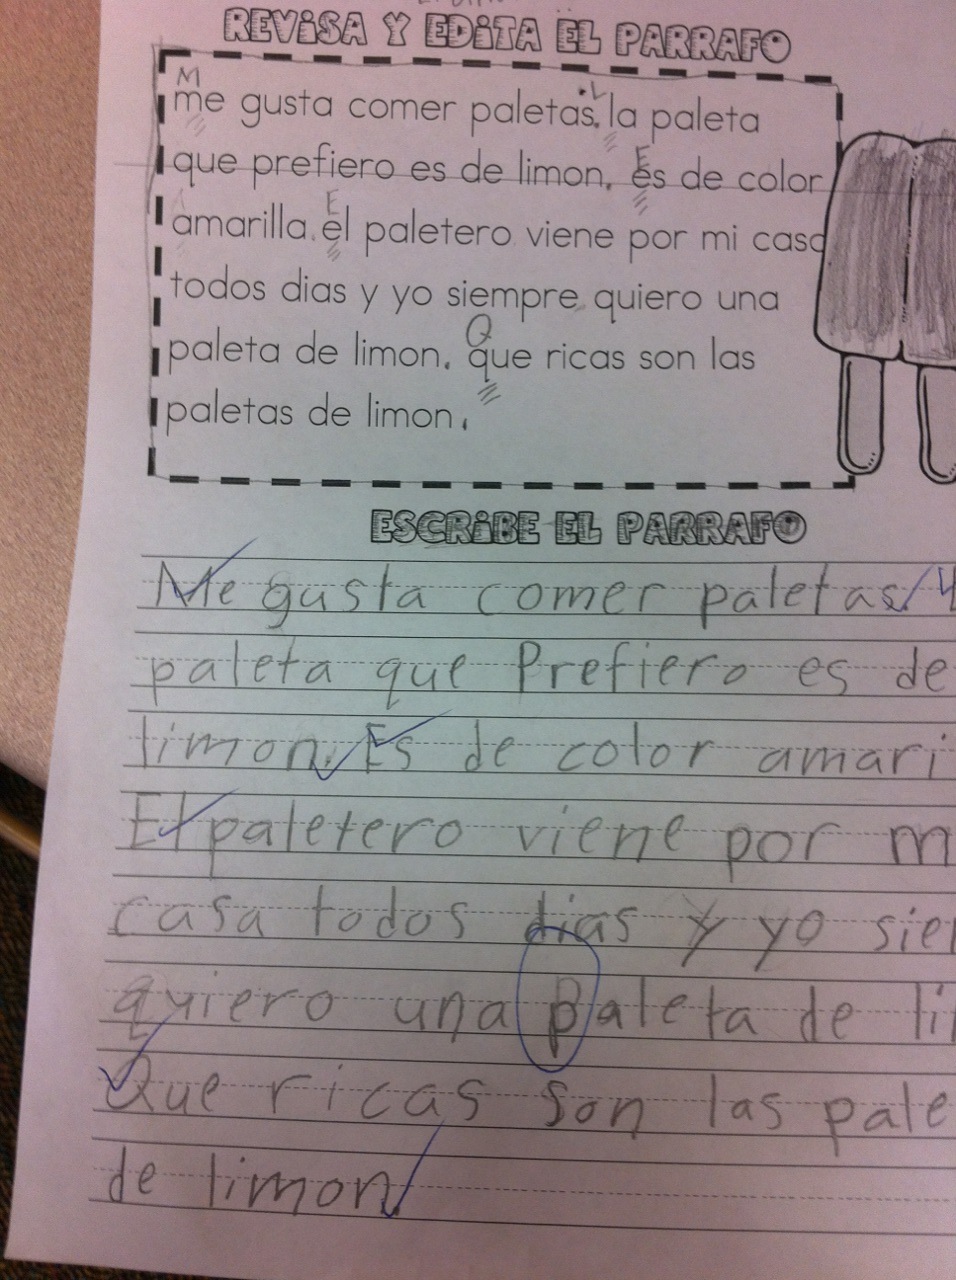 REVISA Y EDITA EL PARRAFO
M
me gusta comer paletas. L la paleta
que prefiero es de limon. E es de color
amarilla. E el paletero viene por mi casa
todos dias y yo siempre quiero una
paleta de limon. Q que ricas son las
paletas de limon.
ESCRIBE EL PARRAFO
Me gusta comer paletas.
paleta que Prefiero es de
limon. Es de color amari
El paletero viene por m
casa todos dias y yo sie
quiero una paleta de li
Que ricas son las pale
de limon